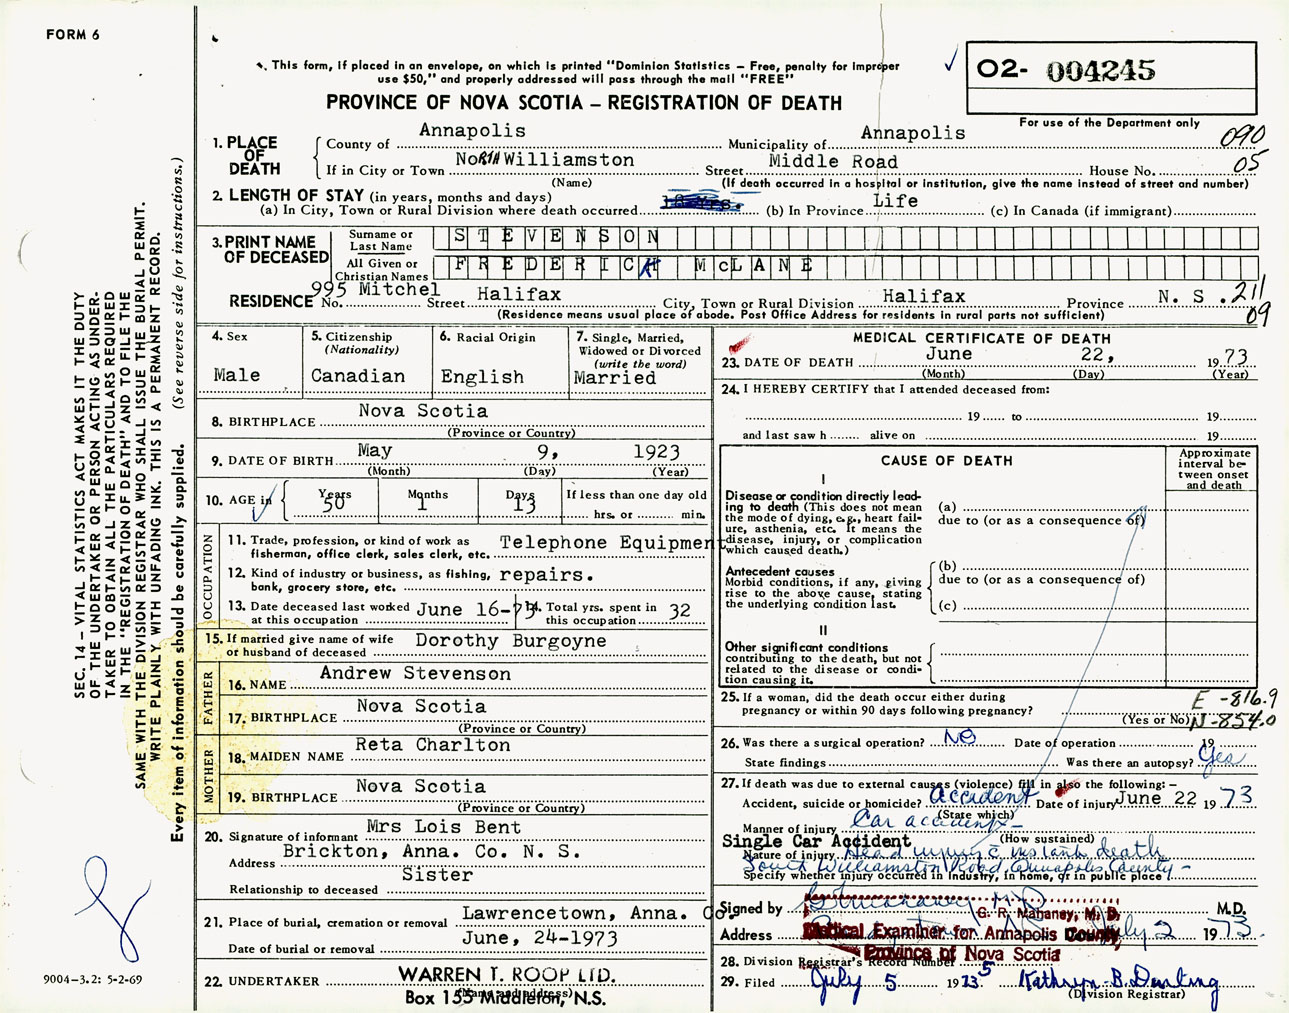 FORM 6
This form, if placed in an envelope, on which is printed "Dominion Statistics – Free, penalty for improper
use $50," and properly addressed will pass through the mail "FREE"
O2- 004245
For use of the Department only
PROVINCE OF NOVA SCOTIA – REGISTRATION OF DEATH
1. PLACE OF DEATH
County of Annapolis Municipality of Annapolis 090
If in City or Town NoRtH Williamston Street Middle Road House No. 05
(Name) (If death occurred in a hospital or institution, give the name instead of street and number)
2. LENGTH OF STAY (in years, months and days)
(a) In City, Town or Rural Division where death occurred (b) In Province Life (c) In Canada (if immigrant)
3. PRINT NAME OF DECEASED
Surname or Last Name STEVENSON
All Given or Christian Names FREDERICK McLANE
RESIDENCE No. 995 Mitchel Street Halifax City, Town or Rural Division Halifax Province N. S. 211
(Residence means usual place of abode. Post Office Address for residents in rural parts not sufficient) 09
4. Sex Male
5. Citizenship (Nationality) Canadian
6. Racial Origin English
7. Single, Married, Widowed or Divorced (write the word) Married
8. BIRTHPLACE Nova Scotia
(Province or Country)
9. DATE OF BIRTH May 9, 1923
(Month) (Day) (Year)
10. AGE in Years 50 Months 1 Days 13 If less than one day old
hrs. or min.
OCCUPATION
11. Trade, profession, or kind of work as fisherman, office clerk, sales clerk, etc. Telephone Equipment
12. Kind of industry or business, as fishing, bank, grocery store, etc. repairs.
13. Date deceased last worked at this occupation June 16-73
14. Total yrs. spent in this occupation 32
15. If married give name of wife or husband of deceased Dorothy Burgoyne
FATHER
16. NAME Andrew Stevenson
17. BIRTHPLACE Nova Scotia
(Province or Country)
MOTHER
18. MAIDEN NAME Reta Charlton
19. BIRTHPLACE Nova Scotia
(Province or Country)
20. Signature of informant Mrs Lois Bent
Address Brickton, Anna. Co. N. S.
Relationship to deceased Sister
21. Place of burial, cremation or removal Lawrencetown, Anna. Co.
Date of burial or removal June, 24-1973
22. UNDERTAKER WARREN T. ROOP LTD.
(Name and address)
Box 155 Middleton, N.S.
MEDICAL CERTIFICATE OF DEATH
23. DATE OF DEATH June 22, 1973
(Month) (Day) (Year)
24. I HEREBY CERTIFY that I attended deceased from:
19 to 19
and last saw h alive on 19
CAUSE OF DEATH
Approximate interval between onset and death
I
Disease or condition directly leading to death (This does not mean the mode of dying, e.g., heart failure, asthenia, etc. It means the disease, injury, or complication which caused death.)
(a)
due to (or as a consequence of)
Antecedent causes
Morbid conditions, if any, giving rise to the above cause, stating the underlying condition last.
(b)
due to (or as a consequence of)
(c)
II
Other significant conditions
contributing to the death, but not related to the disease or condition causing it.
25. If a woman, did the death occur either during
pregnancy or within 90 days following pregnancy?
(Yes or No)
E -816.9
N -854.0
26. Was there a surgical operation? No Date of operation 19
State findings Was there an autopsy? Yes
27. If death was due to external causes (violence) fill in also the following: –
Accident, suicide or homicide? Accident Date of injury June 22 1973
(State which)
Manner of injury Car accident –
Single Car Accident (How sustained)
Nature of injury Head injury instant death
South Williamston Road Annapolis County –
Specify whether injury occurred in industry, in home, or in public place
Signed by M.D.
G. R. Mahaney, M. D.
Address July 2 1973.
Medical Examiner for Annapolis County
Province of Nova Scotia
28. Division Registrar's Record Number 5
29. Filed July 5 1973 Kathryn B. Darling
(Division Registrar)
SEC. 14 – VITAL STATISTICS ACT MAKES IT THE DUTY
OF THE UNDERTAKER OR PERSON ACTING AS UNDER-
TAKER TO OBTAIN ALL THE PARTICULARS REQUIRED
IN THE "REGISTRATION OF DEATH" AND TO FILE THE
SAME WITH THE DIVISION REGISTRAR WHO SHALL ISSUE THE BURIAL PERMIT.
WRITE PLAINLY WITH UNFADING INK. THIS IS A PERMANENT RECORD.
Every item of information should be carefully supplied. (See reverse side for instructions.)
9004-3.2: 5-2-69